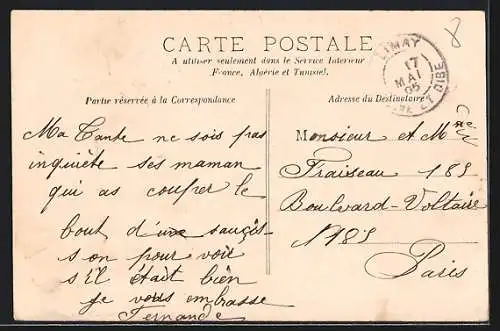 CARTE POSTALE
A utiliser seulement dans le Service Intérieur
France, Algérie et Tunisie).
Partie réservée à la Correspondance
Adresse du Destinataire
LIMAY
17
MAI
05
SEINE ET OISE
8
Ma Tante ne sois pas
inquiète ses maman
qui as couper le
bout d'une sauçis
son pour voir
s'il était bien
je vous embrasse
Fernande
Monsieur et Mme
Fraiseau 189
Boulward-Voltaire
N°189
Paris